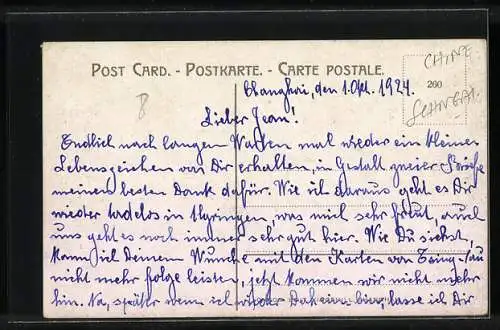 POST CARD. - POSTKARTE. - CARTE POSTALE.
CHINE
260
SCHANGHAI.
8
Changhai, den 1. Okt. 1924.
Lieber Jean!
Endlich nach langem Warten mal wieder ein kleines
Lebenszeichen von Dir erhalten, in Gestalt zweier Briefe
meinen besten Dank dafür. Wie ich daraus geht es Dir
wieder tadelos in Thyringen, was mich sehr freut, auch
uns geht es noch immer sehr gut hier. Wie Du siehst,
kann ich Deinem Wunsche mit den Karten von Tsing-tau
nicht mehr folge leisten, jetzt kommen wir nicht mehr
hin. Na, später wenn ich wieder Daheim bin, lasse ich Dir